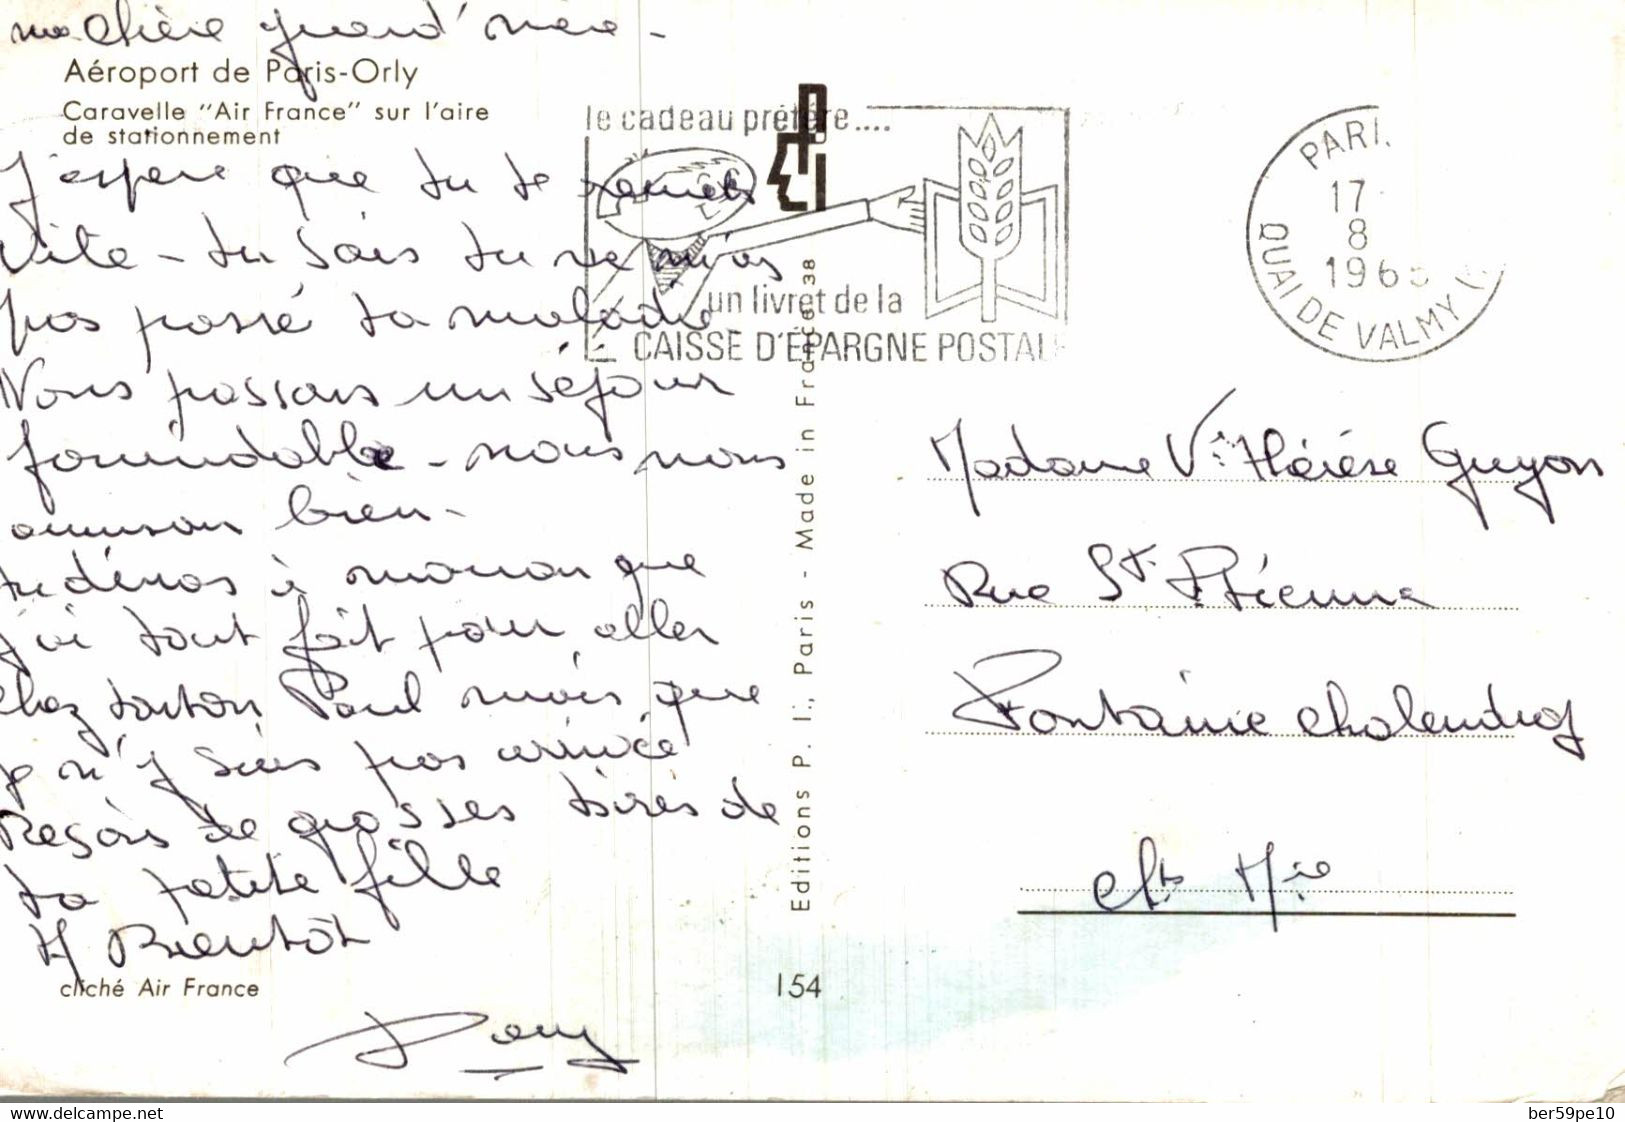 ma chère grand' mère -
Aéroport de Paris-Orly
Caravelle "Air France" sur l'aire
de stationnement
J'espère que tu te remets
vite - tu sais tu ne m'as
pas passé ta maladie
Nous passons un séjour
formidable - nous nous
amuson bien -
tu diras à maman que
j'ai tout fait pour aller
chez tonton Paul mais que
je n'y suis pas arrivée
Reçois de grosses bises de
ta petite fille
A Bientôt
cliché Air France
154
Editions P. I., Paris - Made in France 38
le cadeau préféré....
un livret de la
CAISSE D'ÉPARGNE POSTALE
PARI
17
8
196
QUAI DE VALMY
Madame Vve Hérése Guyon
Rue St Etienne
Fontaine chalendray
Chte Mme
delcampe.net
ber59pe10